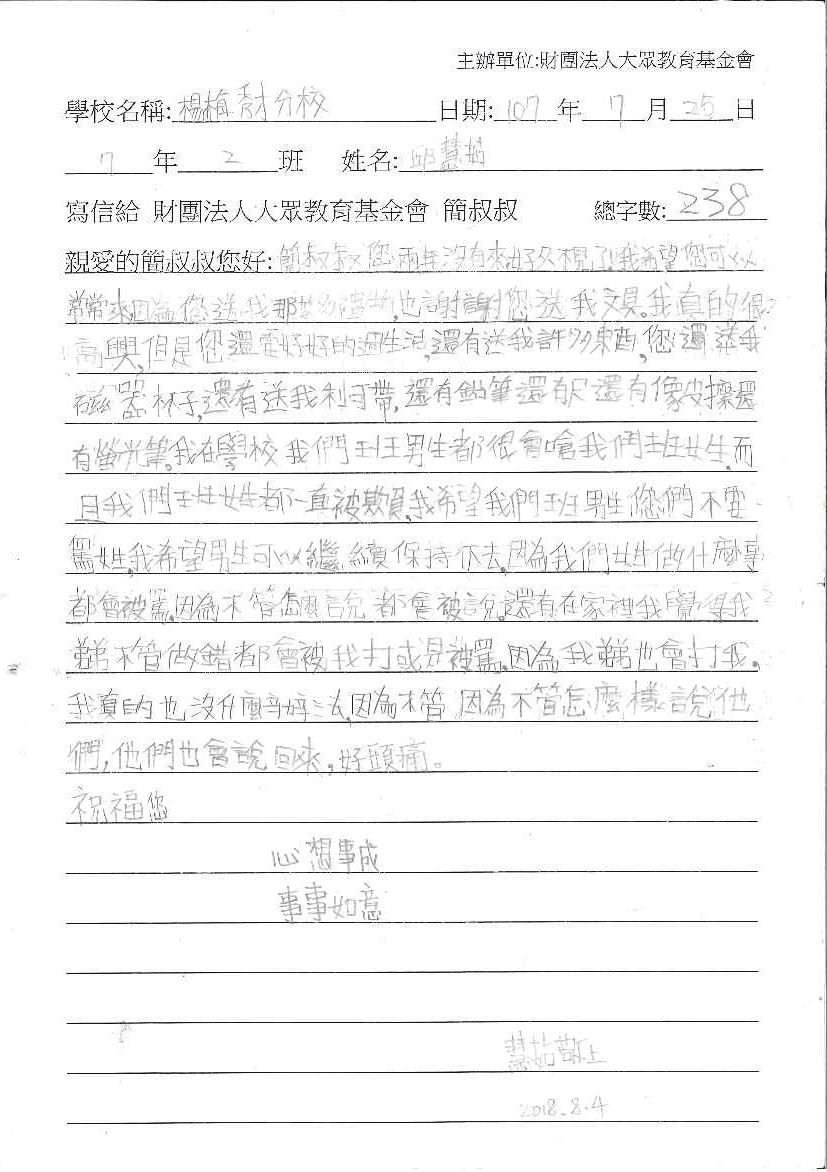 主辦單位:財團法人大眾教育基金會
學校名稱:楊梅秀才分校 日期:107年7月25日
7年2班 姓名:邱慧茹
寫信給 財團法人大眾教育基金會 簡叔叔 總字數:238
親愛的簡叔叔您好:簡叔叔您兩年沒有來好久不見了!我希望您可以
常常來因為您送我那麼多禮物,也謝謝您送我文具。我真的很
高興,但是您還要好好的過生活,還有送我許多東西,您還送我
磁器杯子,還有送我利可帶,還有鉛筆還有尺還有像皮擦還
有螢光筆。我在學校我們班男生都很會嗆我們班女生,而
且我們班女生都一直被欺負,我希望我們班男生您們不要
罵女生,我希望男生可以繼續保持下去,因為我們女生做什麼事
都會被罵,因為不管怎麼說都會被說。還有在家裡我覺得我
弟不管做錯都會被我打或是被罵,因為我弟也會打我。
我真的也沒什麼辦法,因為不管因為不管怎麼樣說他
們,他們也會說回來,好頭痛。
祝福您
心想事成
事事如意
慧茹敬上
2018.8.4